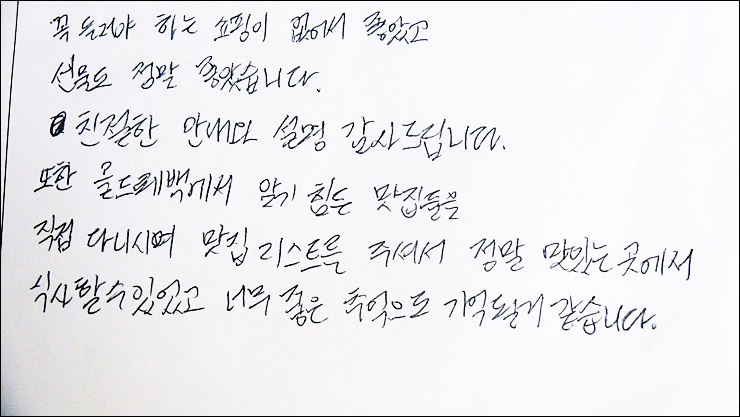 꼭 들려야 하는 쇼핑이 없어서 좋았고
선물도 정말 좋았습니다.
친절한 안내와 설명 감사드립니다.
또한 콜드레백에서 알기 힘든 맛집들을
직접 다니시며 맛집 리스트를 주셔서 정말 맛있는 곳에서
식사할 수 있었고 너무 좋은 추억으로 기억될거 같습니다.